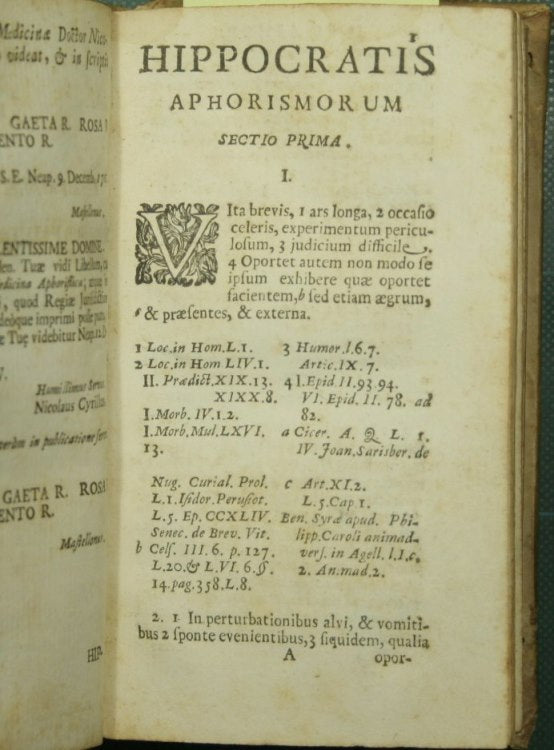 Medicinæ Doctor
videat, & in
GAETA R. ROSA
ENTO R.
S. E. Neap. 9. Decemb. 17
LENTISSIME DOMINE.
Tuæ vidi Libellum,
quod Regiæ
imprimi posse
Tuę videbitur Nap. 12.
Nicolaus Cyrillus
in publicatione
GAETA R. ROSA
ENTO R.
Mastellonus.
HIP-
HIPPOCRATIS
APHORISMORUM
SECTIO PRIMA.
I.
VIta brevis, 1 ars longa, 2 occasio
celeris, experimentum pericu-
losum, 3 judicium difficile.
4 Oportet autem non modo se
ipsum exhibere quæ oportet
facientem, b sed etiam ægrum,
& præsentes, & externa.
1 Loc. in Hom. L. 1.
2 Loc. in Hom LIV. 1.
II. Prædict. XIX. 13.
XIXX. 8.
I. Morb. IV. 1. 2.
I. Morb. Mul. LXVI.
13.
3 Humor. l. 6. 7.
Artic. IX. 7.
4 l. Epid II. 93. 94.
VI. Epid. II. 78. ad
82.
a Cicer. A. Q L. 1.
IV. Joan. Sarisber. de
Nug. Curial. Prol.
L. 1. Isidor. Pelusiot.
L. 5. Ep. CCXLIV.
Senec. de Brev. Vit.
b Cels. III. 6. p. 127.
L. 20. & L. VI. 6. ss.
14. pag. 358. L. 8.
c Art. XI. 2.
L. 5. Cap 1.
Ben. Syræ apud. Phi-
lipp. Caroli animad-
vers. in Agell. l. I. c.
2. An. mad. 2.
2. 1 In perturbationibus alvi, & vomiti-
bus 2 sponte evenientibus, 3 siquidem, qualia
A
opor-